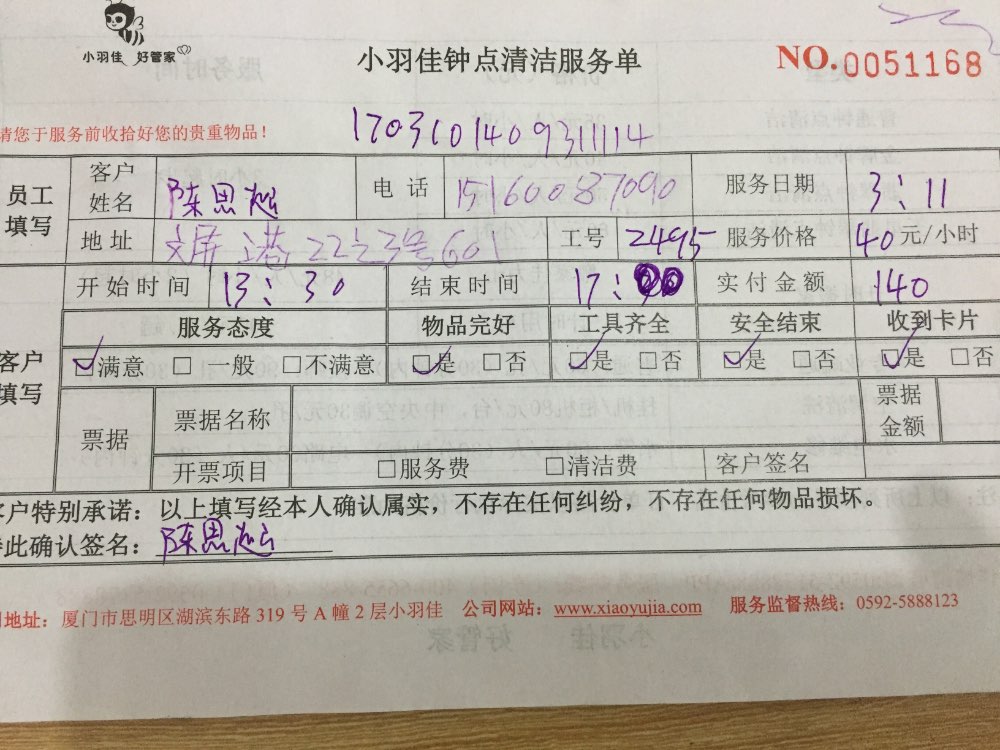 小羽佳 好管家
小羽佳钟点清洁服务单
NO.0051168
请您于服务前收拾好您的贵重物品！
1703101409311114
员工填写 客户姓名 陈思 电话 15160087090 服务日期 3:11
地址 屏 港 22 3号601 工号 2495 服务价格 40元/小时
开始时间 13:30 结束时间 17: 实付金额 140
客户填写 服务态度 物品完好 工具齐全 安全结束 收到卡片
☑满意 □一般 □不满意 ☑是 □否 ☑是 □否 ☑是 □否 ☑是 □否
票据 票据名称 票据金额
开票项目 □服务费 □清洁费 客户签名
客户特别承诺：以上填写经本人确认属实，不存在任何纠纷，不存在任何物品损坏.
此确认签名：陈思
地址：厦门市思明区湖滨东路 319 号 A 幢 2 层小羽佳 公司网站：www.xiaoyujia.com 服务监督热线：0592-5888123